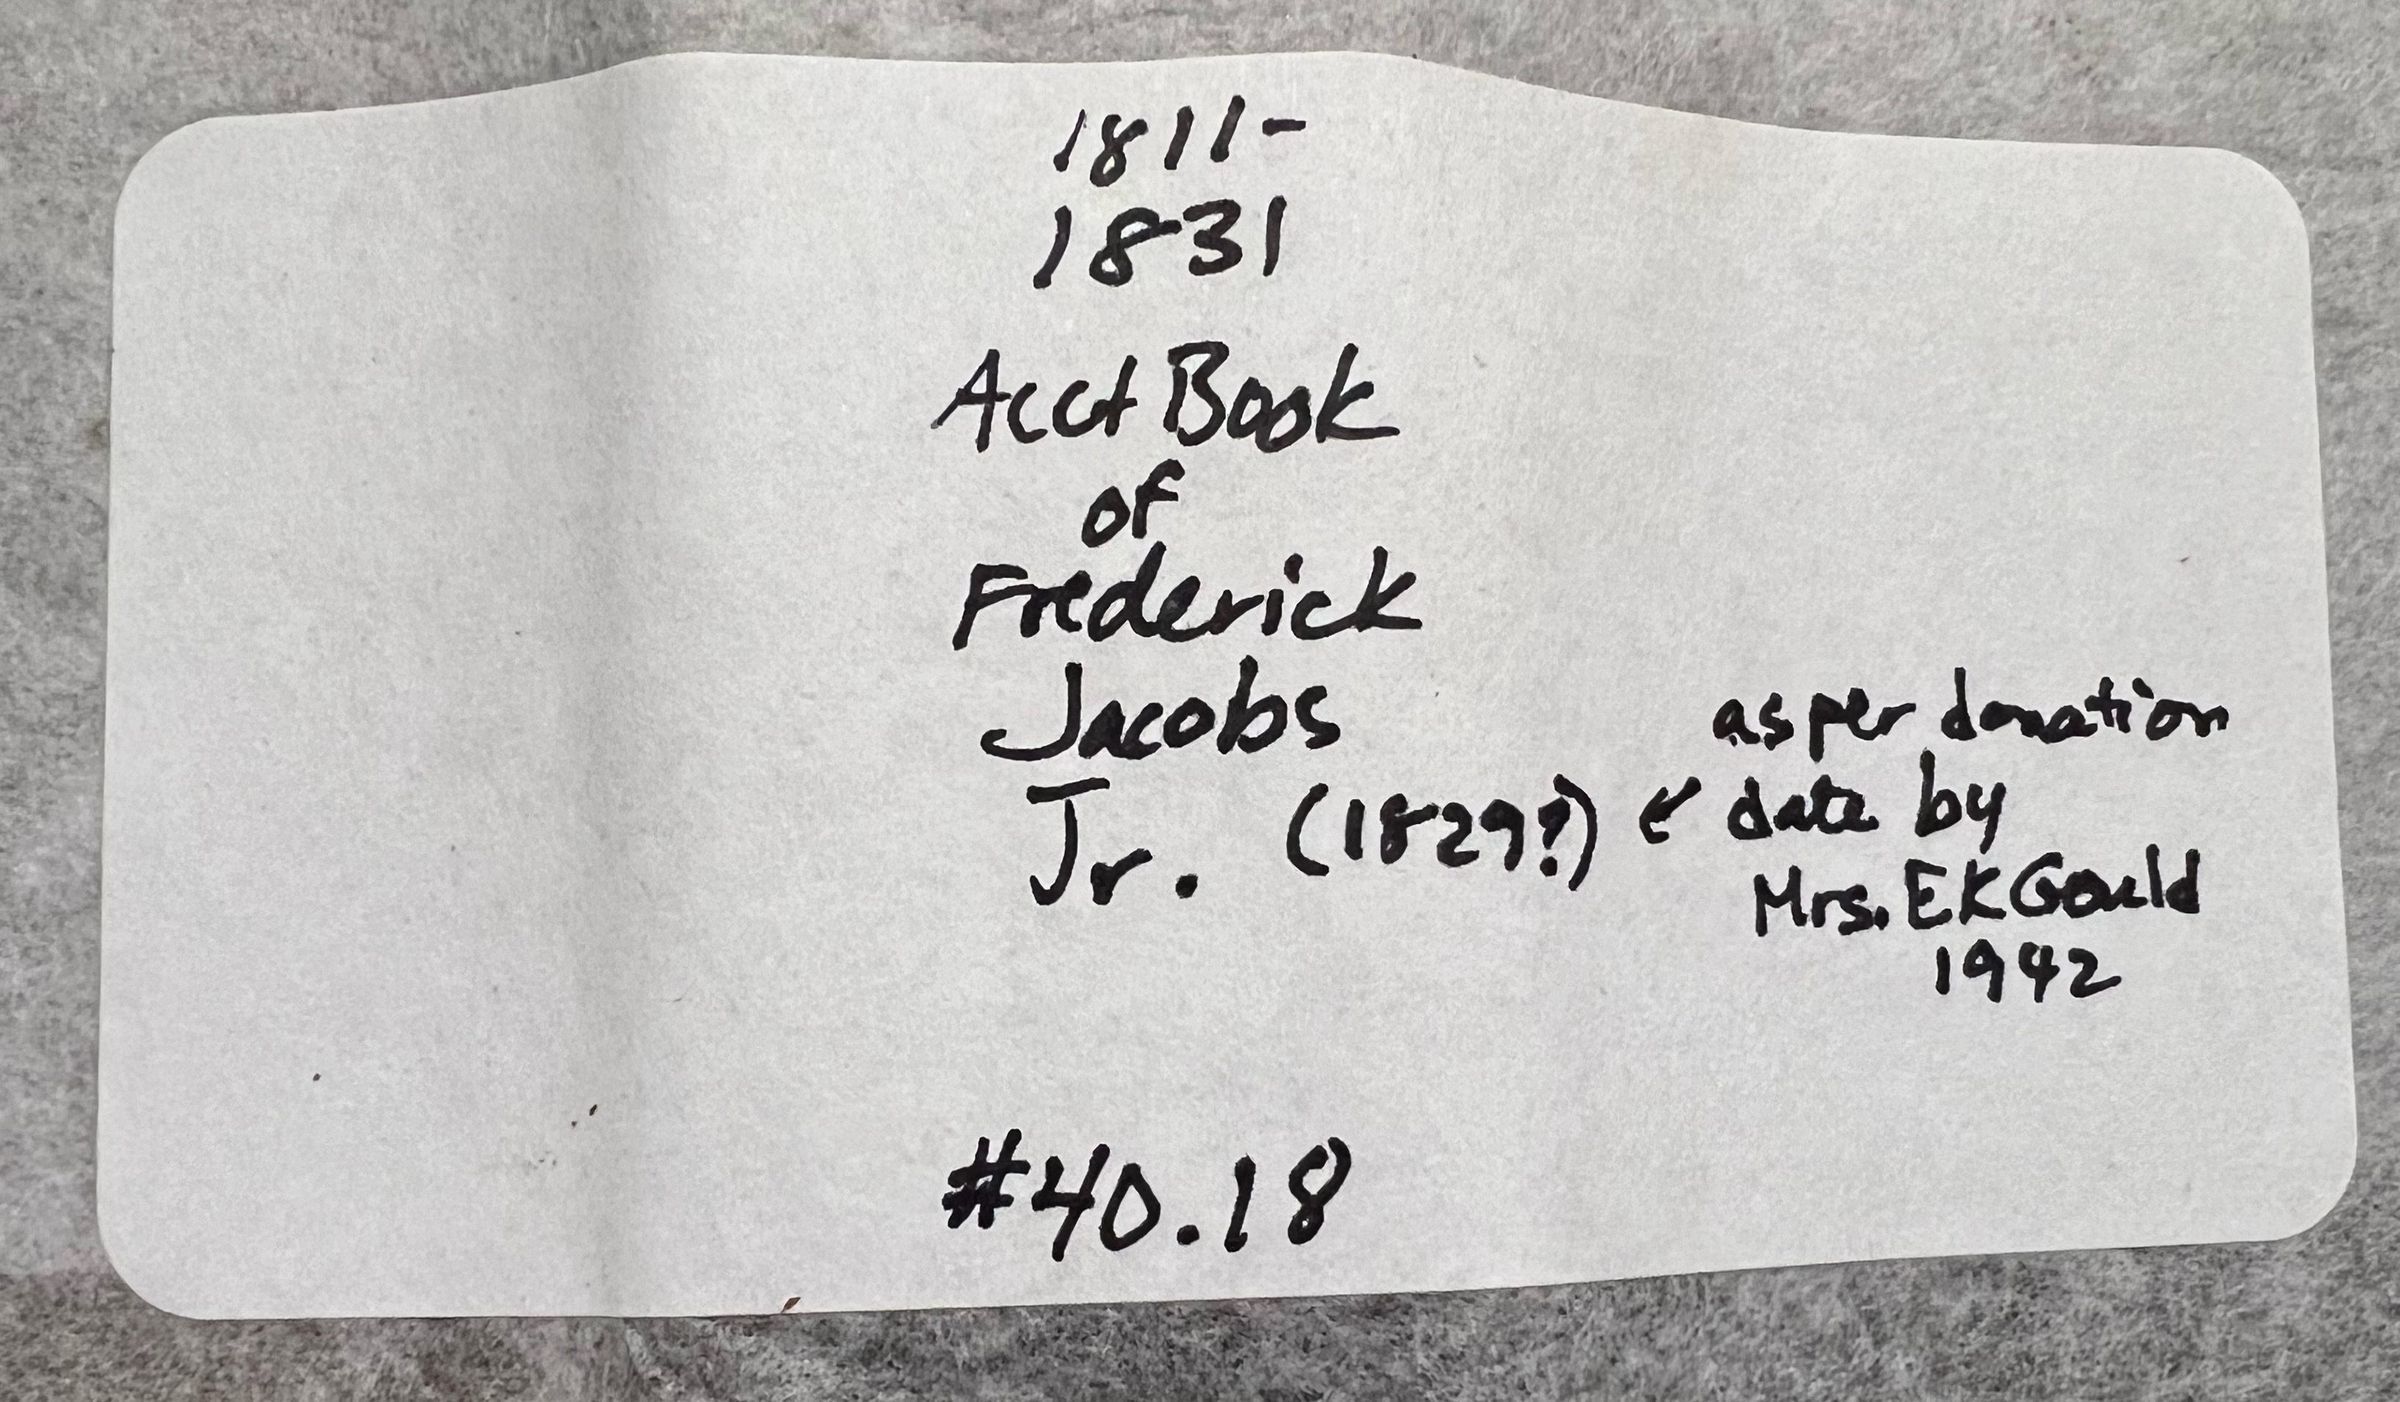 1811-
1831
Acct Book
of
Frederick
Jacobs
Jr. (1829?) ↙
as per donation
date by
Mrs. EK Gould
1942
#40.18